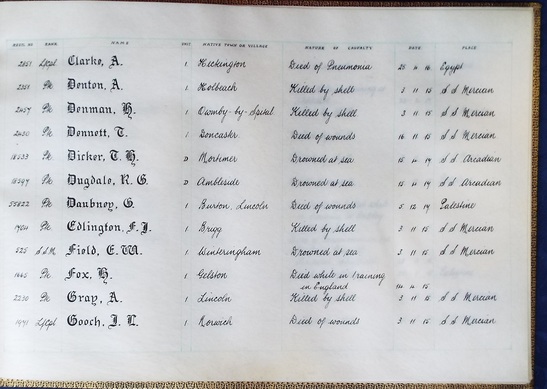 REGTL NO RANK NAME UNIT NATIVE TOWN OR VILLAGE NATURE OF CASUALTY DATE PLACE
2851 L/Cpl Clarke, A. 1 Heckington Died of Pneumonia 16 Egypt
Pte Denton, A. 1 Holbeach Killed by shell 3 11 15 S S Mercian
2457 Pte Denman, H. 1 Owmby-by-Spital Killed by shell 3 11 15 S S Mercian
Pte Dennett, T. 1 Doncaster Died of wounds 16 11 15 S S Mercian
Pte Dicker, T. H. D Mortimer Drowned at sea 15 4 17 S S Arcadian
Pte Dugdale, R. G. D Ambleside Drowned at sea 15 4 17 S S Arcadian
55822 Pte Daubney, G. 1 Burton, Lincoln Died of wounds 5 12 17 Palestine
Pte Edlington, F. J. 1 Brigg Killed by shell 3 11 15 S S Mercian
525 Field, E. W. 1 Winteringham Drowned at sea 3 11 15 S S Mercian
1665 Pte Fox, H. 1 Gelston Died while in training
in England 15
2230 Pte Gray, A. 1 Lincoln Killed by shell 3 11 15 S S Mercian
1971 L/Cpl Gooch, J. L. 1 Norwich Died of wounds 3 11 15 S S Mercian